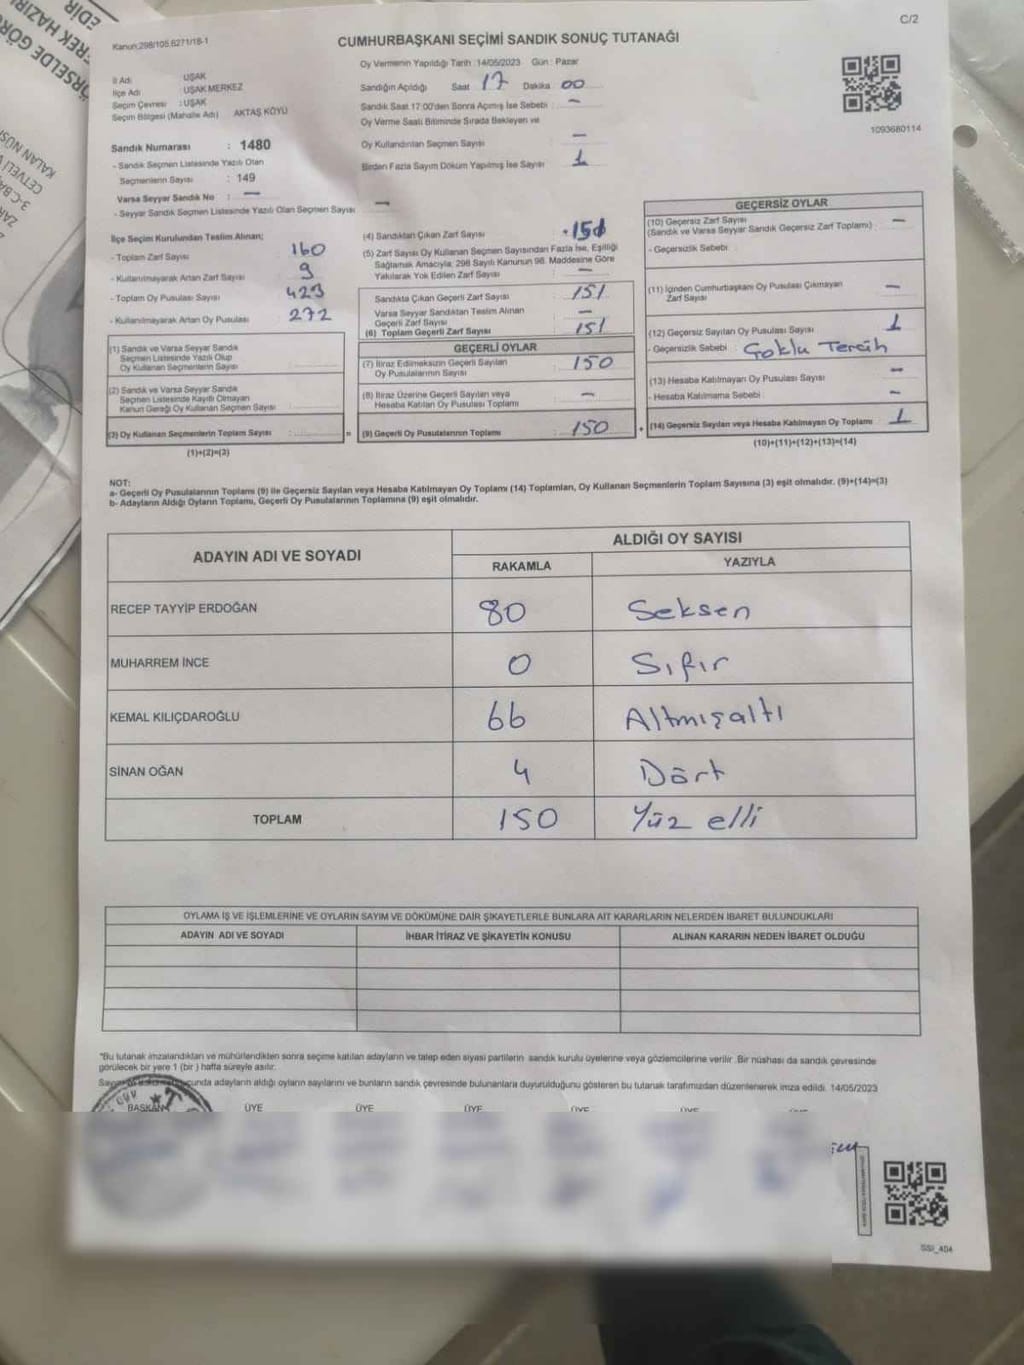 C/2
Kanun:298/105,6271/18-1
CUMHURBAŞKANI SEÇİMİ SANDIK SONUÇ TUTANAĞI
İl Adı UŞAK
İlçe Adı UŞAK MERKEZ
Seçim Çevresi : UŞAK
Seçim Bölgesi (Mahalle Adı) AKTAŞ KÖYÜ
Sandık Numarası : 1480
- Sandık Seçmen Listesinde Yazılı Olan
Seçmenlerin Sayısı : 149
Varsa Seyyar Sandık No : —
- Seyyar Sandık Seçmen Listesinde Yazılı Olan Seçmen Sayısı —
Oy Vermenin Yapıldığı Tarih : 14/05/2023 Gün : Pazar
Sandığın Açıldığı Saat 17 Dakika 00
Sandık Saat 17:00'den Sonra Açılmış İse Sebebi : —
Oy Verme Saati Bitiminde Sırada Bekleyen ve
Oy Kullandırılan Seçmen Sayısı —
Birden Fazla Sayım Döküm Yapılmış İse Sayısı 1
1093680114
İlçe Seçim Kurulundan Teslim Alınan;
- Toplam Zarf Sayısı 160
- Kullanılmayarak Artan Zarf Sayısı 9
- Toplam Oy Pusulası Sayısı 423
- Kullanılmayarak Artan Oy Pusulası 272
(1) Sandık ve Varsa Seyyar Sandık
Seçmen Listesinde Yazılı Olup
Oy Kullanan Seçmen Sayısı
(2) Sandık ve Varsa Seyyar Sandık
Seçmen Listesinde Kayıtlı Olmayan
Kanun Gereği Oy Kullanan Seçmen Sayısı
(3) Oy Kullanan Seçmenlerin Toplam Sayısı :
(1)+(2)=(3)
(4) Sandıktan Çıkan Zarf Sayısı 151
(5) Zarf Sayısı Oy Kullanan Seçmen Sayısından Fazla İse, Eşitliği
Sağlamak Amacıyla; 298 Sayılı Kanunun 98. Maddesine Göre
Yakılarak Yok Edilen Zarf Sayısı —
Sandıkta Çıkan Geçerli Zarf Sayısı 151
Varsa Seyyar Sandıktan Teslim Alınan
Geçerli Zarf Sayısı —
(6) Toplam Geçerli Zarf Sayısı 151
GEÇERLİ OYLAR
(7) İtiraz Edilmeksizin Geçerli Sayılan
Oy Pusulalarının Sayısı 150
(8) İtiraz Üzerine Geçerli Sayılan veya
Hesaba Katılan Oy Pusulası Toplamı —
= (9) Geçerli Oy Pusulalarının Toplamı 150
GEÇERSİZ OYLAR
(10) Geçersiz Zarf Sayısı —
(Sandık ve Varsa Seyyar Sandık Geçersiz Zarf Toplamı)
- Geçersizlik Sebebi
(11) İçinden Cumhurbaşkanı Oy Pusulası Çıkmayan
Zarf Sayısı —
(12) Geçersiz Sayılan Oy Pusulası Sayısı 1
- Geçersizlik Sebebi : Çoklu Tercih
(13) Hesaba Katılmayan Oy Pusulası Sayısı —
- Hesaba Katılmama Sebebi : —
+ (14) Geçersiz Sayılan veya Hesaba Katılmayan Oy Toplamı 1
(10)+(11)+(12)+(13)=(14)
NOT:
a- Geçerli Oy Pusulalarının Toplamı (9) ile Geçersiz Sayılan veya Hesaba Katılmayan Oy Toplamı (14) Toplamları, Oy Kullanan Seçmenlerin Toplam Sayısına (3) eşit olmalıdır. (9)+(14)=(3)
b- Adayların Aldığı Oyların Toplamı, Geçerli Oy Pusulalarının Toplamına (9) eşit olmalıdır.
ADAYIN ADI VE SOYADI ALDIĞI OY SAYISI
RAKAMLA YAZIYLA
RECEP TAYYİP ERDOĞAN 80 Seksen
MUHARREM İNCE 0 Sıfır
KEMAL KILIÇDAROĞLU 66 Altmışaltı
SİNAN OĞAN 4 Dört
TOPLAM 150 Yüz elli
OYLAMA İŞ VE İŞLEMLERİNE VE OYLARIN SAYIM VE DÖKÜMÜNE DAİR ŞİKAYETLERLE BUNLARA AİT KARARLARIN NELERDEN İBARET BULUNDUKLARI
ADAYIN ADI VE SOYADI İHBAR İTİRAZ VE ŞİKAYETİN KONUSU ALINAN KARARIN NEDEN İBARET OLDUĞU
*Bu tutanak imzalandıktan ve mühürlendikten sonra seçime katılan adayların ve talep eden siyasi partilerin sandık kurulu üyelerine veya gözlemcilerine verilir .Bir nüshası da sandık çevresinde
görülecek bir yere 1 (bir ) hafta süreyle asılır.
adayların aldığı oyların sayılarını ve bunların sandık çevresinde bulunanlara duyurulduğunu gösteren bu tutanak tarafımızdan düzenlenerek imza edildi. 14/05/2023
BAŞKAN ÜYE ÜYE ÜYE ÜYE ÜYE
SSI_404